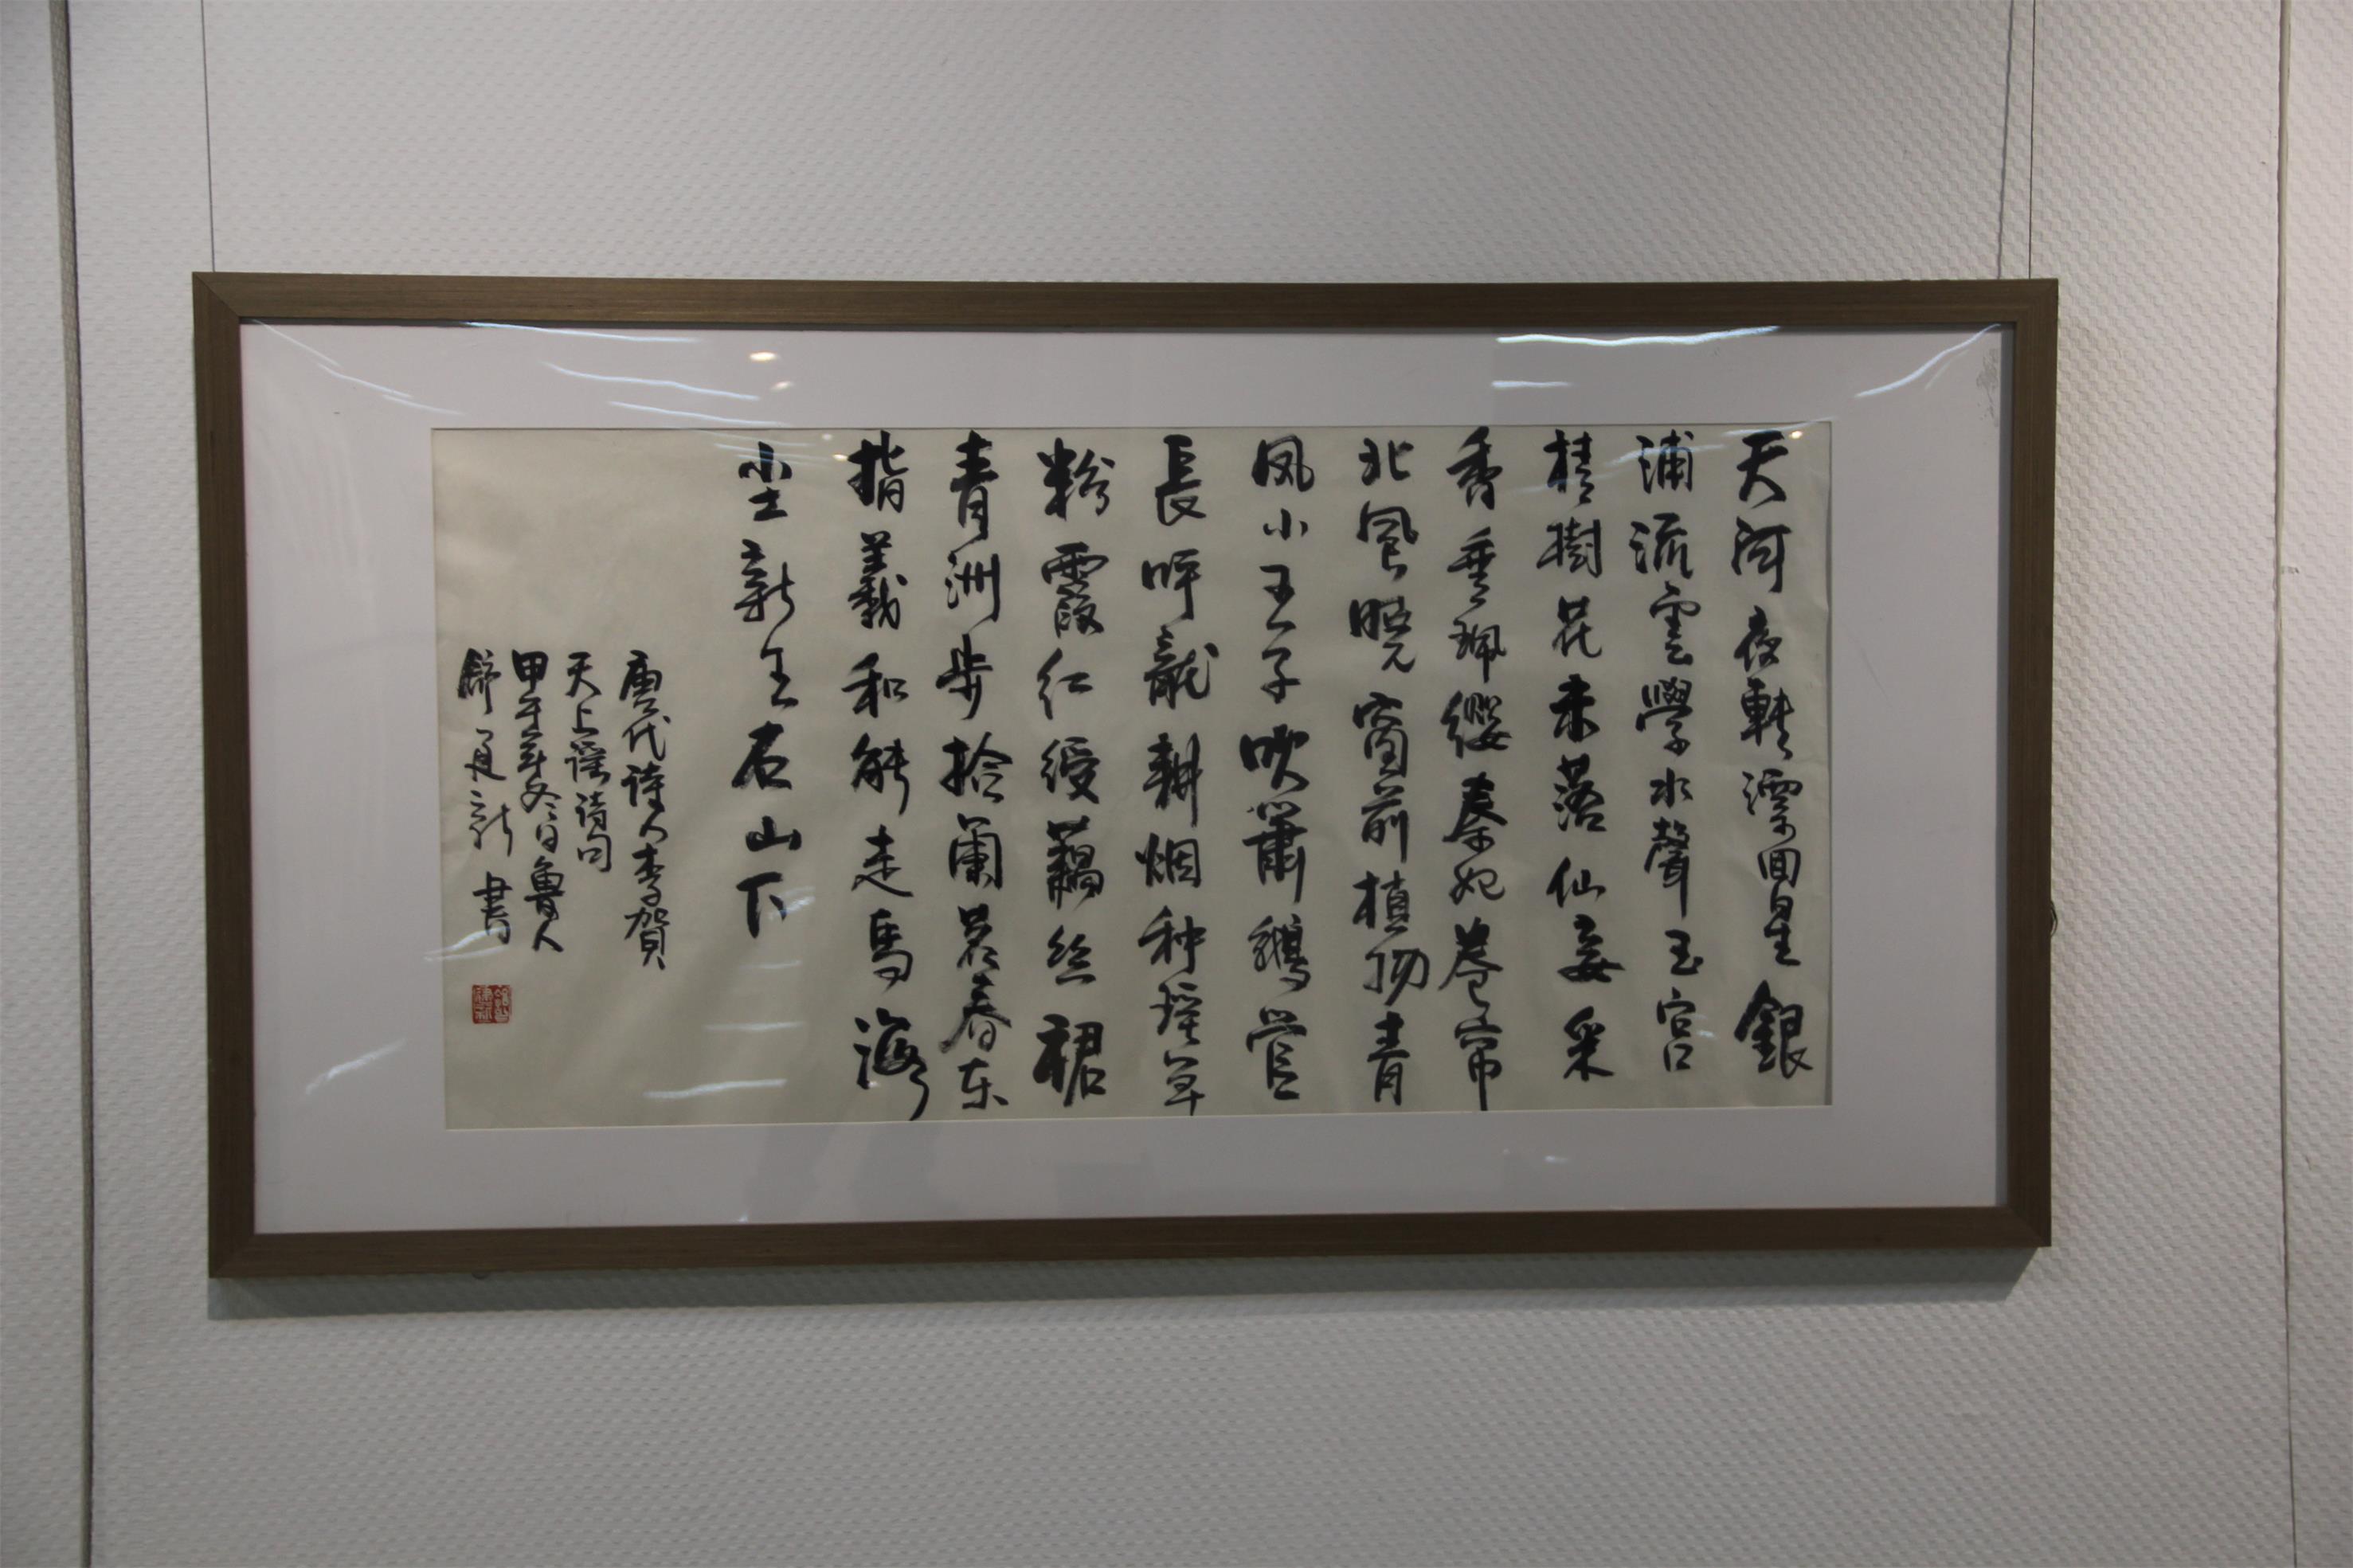 天河夜轉漂回星銀
浦流雲學水聲玉宮
桂樹花未落仙妾采
香垂珮纓秦妃卷帘
北風曉窗前植物青
凤小王子吹簫鵝管
長呼龍耕烟种瑶草
粉霞红绶藕丝裙
青洲步拾蘭苕春东
指羲和能走馬海
尘新生石山下
唐代诗人李賀
天上謡诗句
甲午年冬日魯人
舒新書